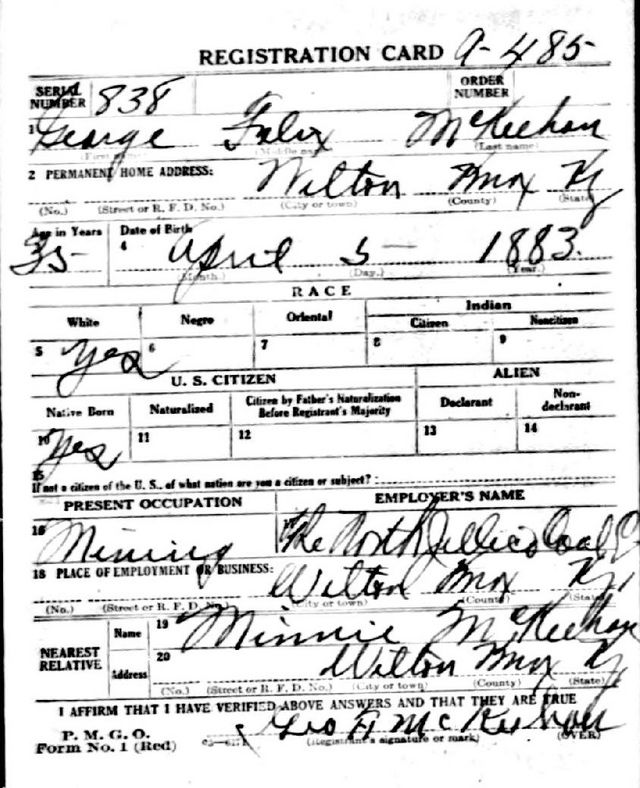 REGISTRATION CARD A-485
SERIAL NUMBER 838 ORDER NUMBER
1 George Felix McKeehan
(First name) (Middle name) (Last name)
2 PERMANENT HOME ADDRESS: Wilton Knox Ky
(No.) (Street or R. F. D. No.) (City or town) (County) (State)
Age in Years Date of Birth
35 4 April 5 1883.
(Month.) (Day.) (Year.)
RACE
White Negro Oriental Indian
Citizen Noncitizen
5 Yes 6 7 8 9
U. S. CITIZEN ALIEN
Native Born Naturalized Citizen by Father's Naturalization Before Registrant's Majority Declarant Non-declarant
10 Yes 11 12 13 14
15
If not a citizen of the U. S., of what nation are you a citizen or subject?
PRESENT OCCUPATION EMPLOYER'S NAME
16 Mining 17 The North Jellico Coal Co
18 PLACE OF EMPLOYMENT OR BUSINESS: Wilton Knox Ky
(No.) (Street or R. F. D. No.) (City or town) (County) (State)
NEAREST RELATIVE Name 19 Minnie McKeehan
Address 20 Wilton Knox Ky
(No.) (Street or R. F. D. No.) (City or town) (County) (State)
I AFFIRM THAT I HAVE VERIFIED ABOVE ANSWERS AND THAT THEY ARE TRUE
P. M. G. O.
Form No. 1 (Red) Geo McKeehan
(Registrant's signature or mark) (OVER)